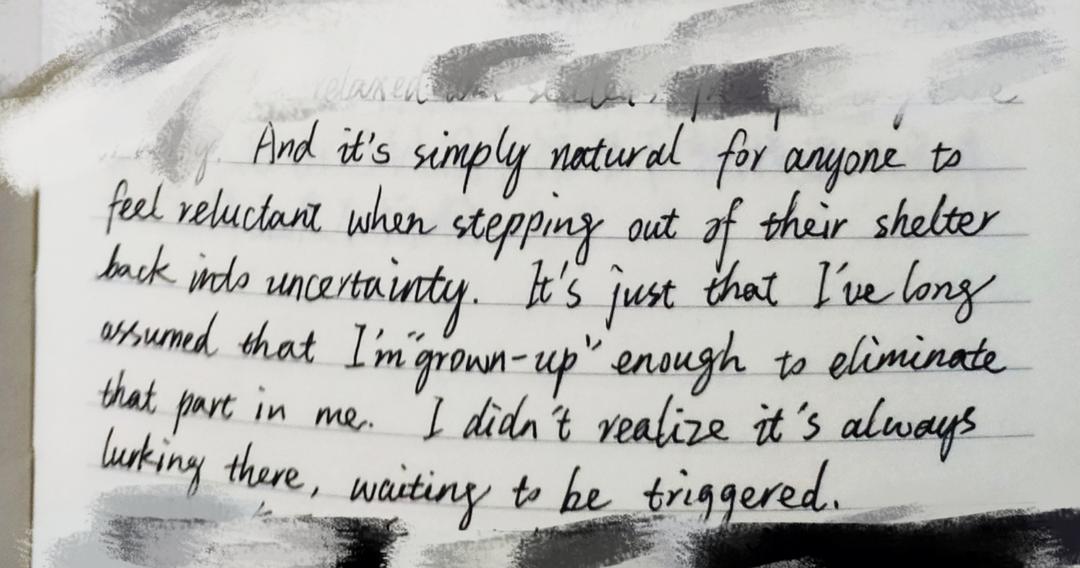 relaxed
And it's simply natural for anyone to
feel reluctant when stepping out of their shelter
back into uncertainty. It's just that I've long
assumed that I'm "grown-up" enough to eliminate
that part in me. I didn't realize it's always
lurking there, waiting to be triggered.